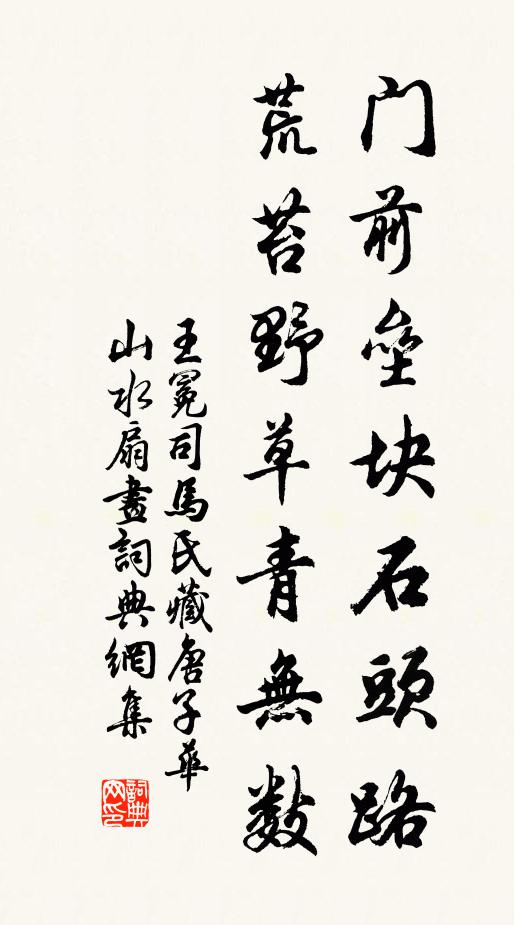 门前垒块石頭路
荒苔野草青無数
王冕司馬氏藏唐子華
山水扇畫詞典網集
詞典
网印